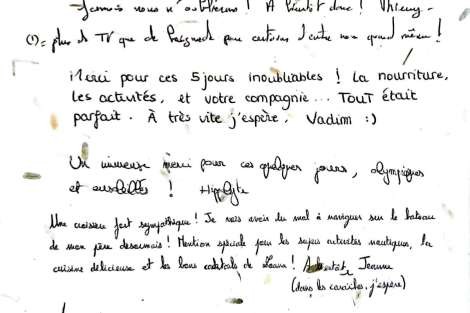 Jamais nous n'oublierons ! A bientôt donc ! Thierry -
(1) = plus de TV que de pour certains d'entre nous quand même !
Merci pour ces 5 jours inoubliables ! La nourriture,
les activités, et votre compagnie... TOUT était
parfait. À très vite j'espère, Vadim :)
Un immense merci pour ces quelques jours, olympiques
et ensoleillés ! Hippolyte
Une croisière fort sympathique ! Je vais avoir du mal à naviguer sur le bateau
de mon père désormais ! Mention spéciale pour les activités nautiques, la
cuisine délicieuse et les bons cocktails de ! A bientôt, Jeanne
(dans les caraïbes, j'espère)